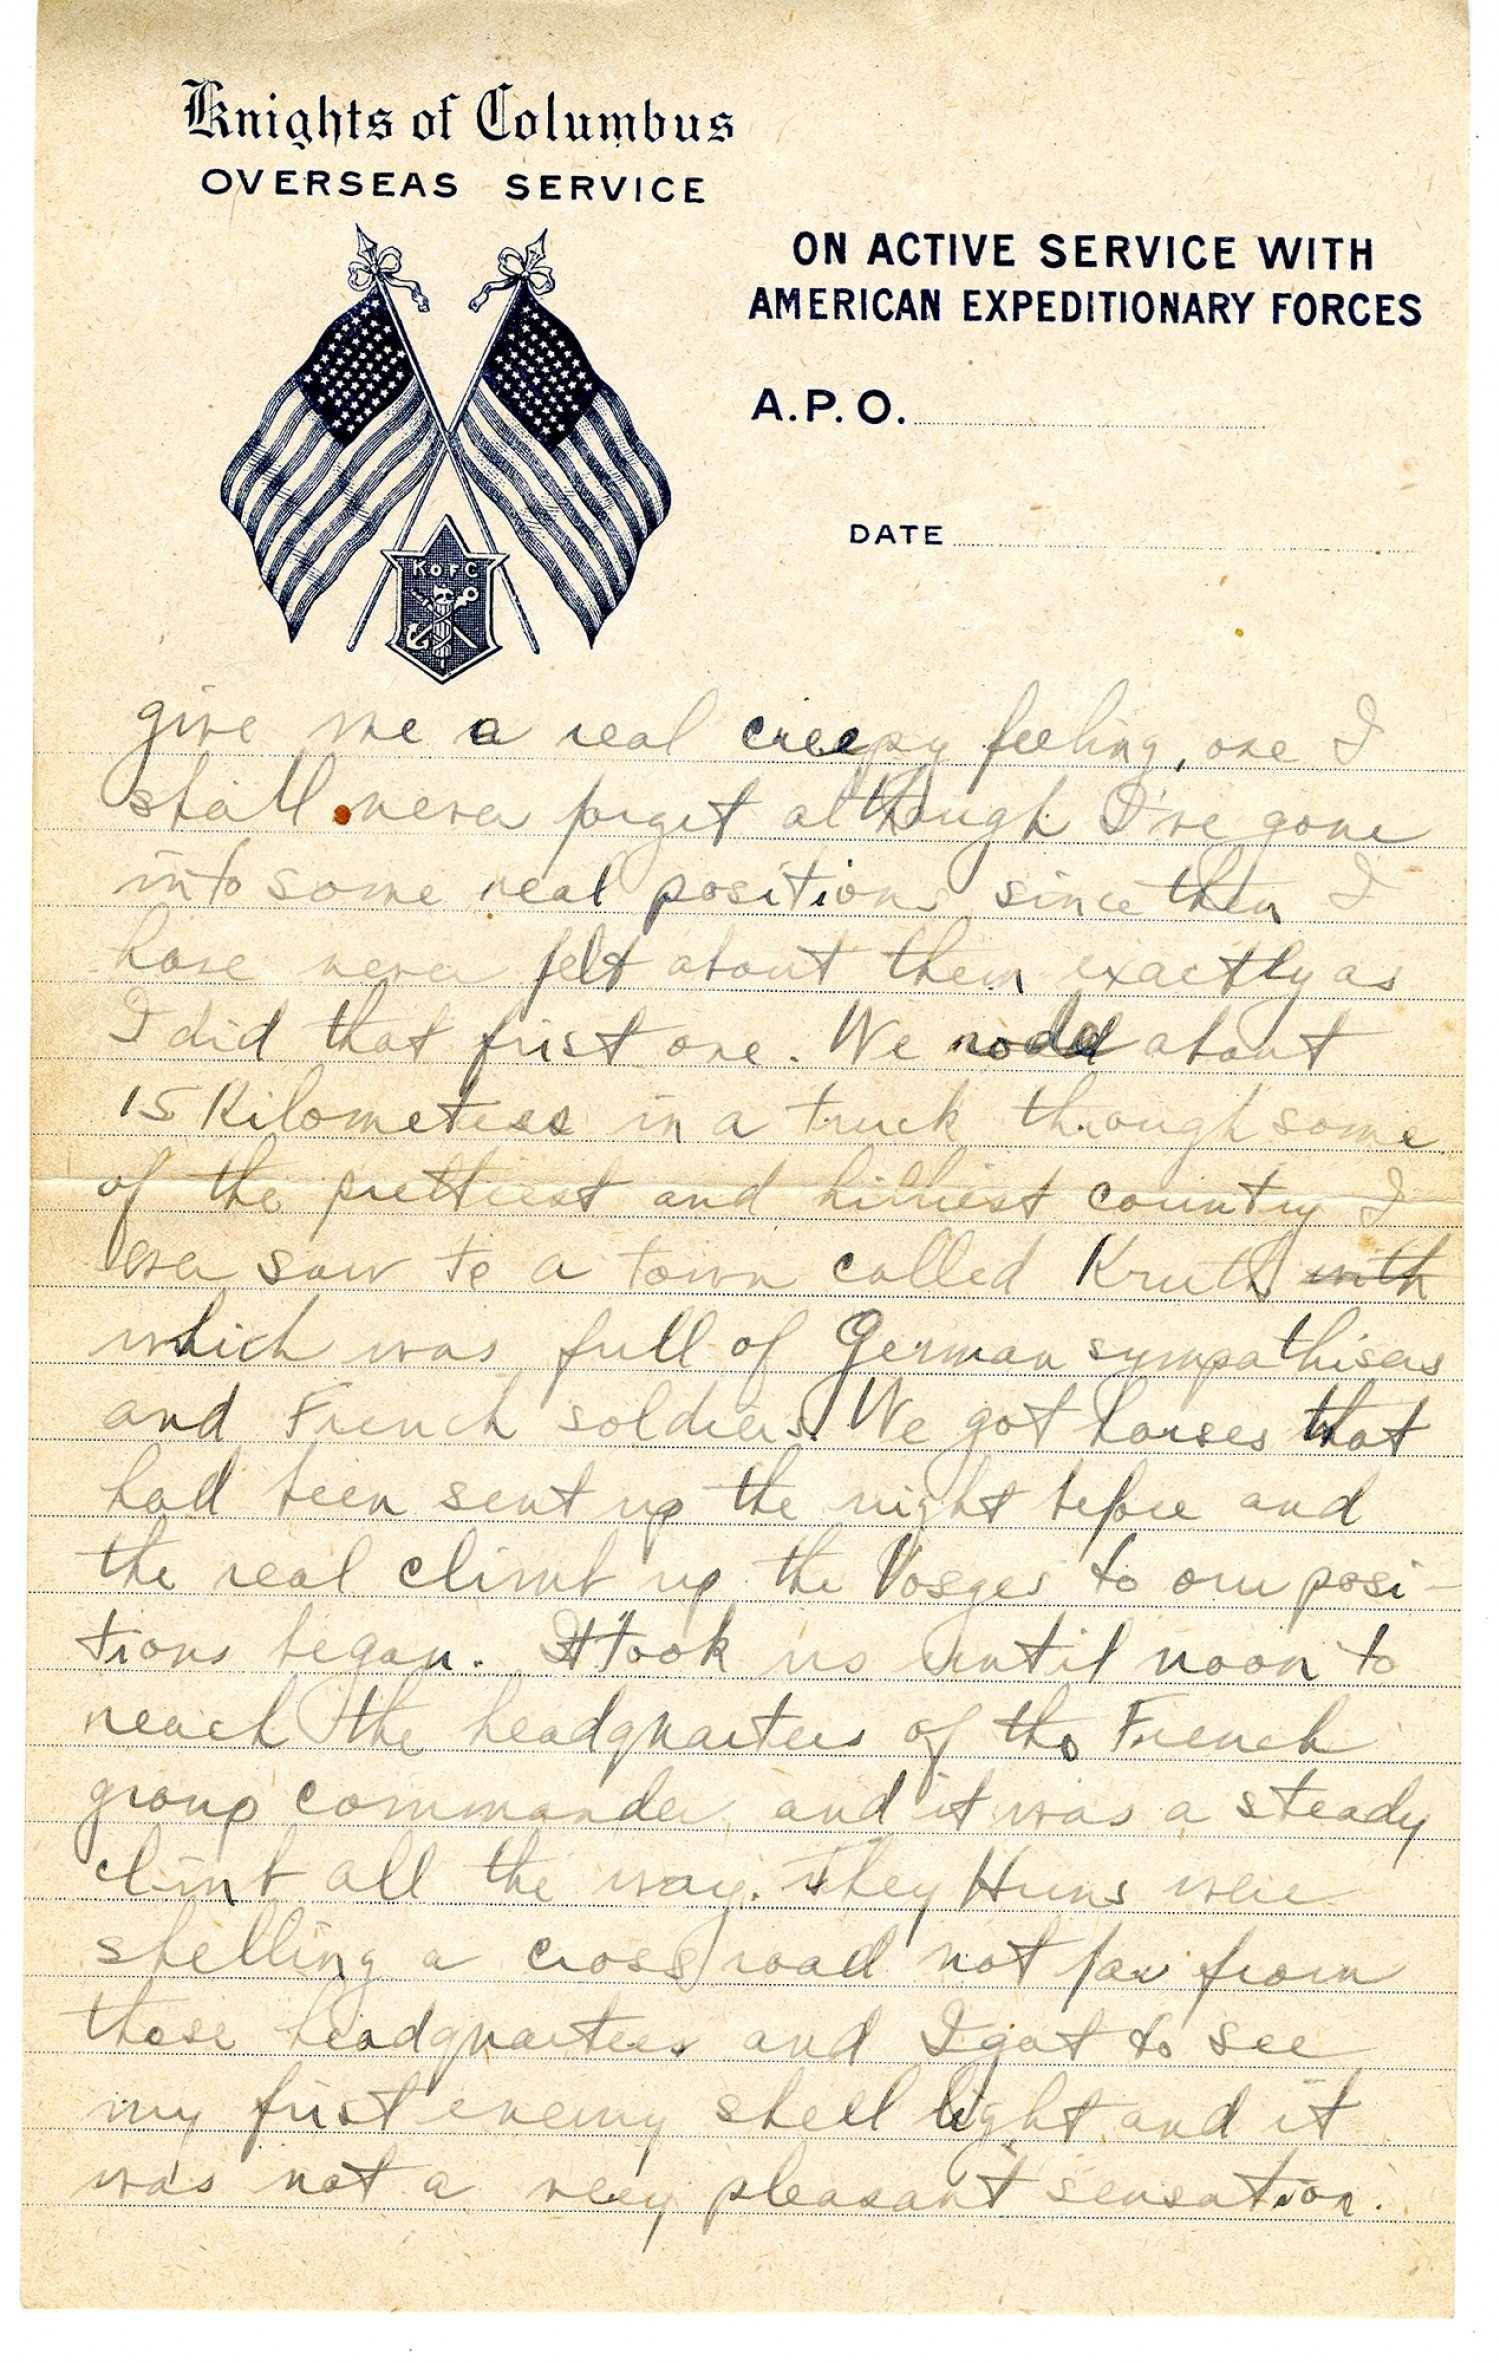 Knights of Columbus
OVERSEAS SERVICE
ON ACTIVE SERVICE WITH
AMERICAN EXPEDITIONARY FORCES
A.P.O.
DATE
K OF C
give me a real creepy feeling, one I
shall never forget although I've gone
into some real positions since then I
have never felt about them exactly as
I did that frist one. We rode about
15 Kilometers in a truck through some
of the prettiest and hilliest country I
ever saw to a town called Kruth with
which was full of German sympathisers
and French soldiers. We got horses that
had been sent up the night before and
the real climb up the Vosges to our posi-
tions began. It took us until noon to
reach the headquarters of the French
group commander and it was a steady
climb all the way. They Huns were
shelling a cross road not far from
these headquarters and I got to see
my first enemy shell light and it
was not a very pleasant sensation.